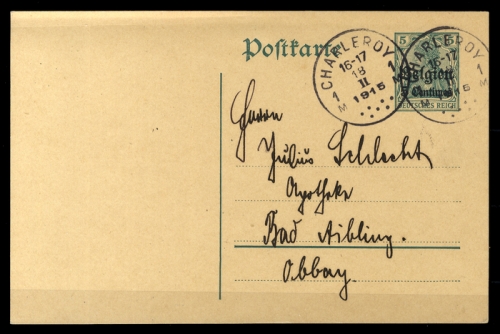 Postkarte
5 5
Belgien
5 Centimes
DEUTSCHES REICH
CHARLEROY 1
16-17
18
II
1915
1 M
CHARLEROY 1
16-17
1915
M
Herrn
Julius Schlecht
Apotheke
Bad Aibling.
Obbay.